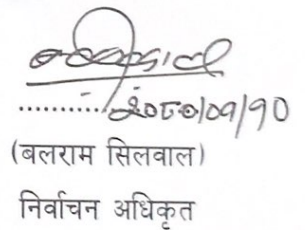 २०८०/०९/१०
(बलराम सिलवाल)
निर्वाचन अधिकृत